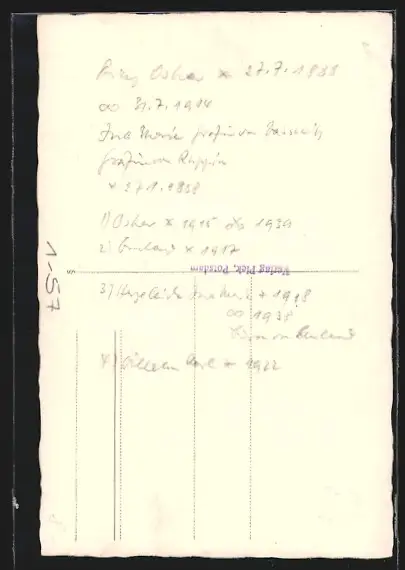 Prinz Oskar * 27.7.1888
∞ 31.7.1914
Ina Marie Gräfin von
Gräfin von Ruppin
* 27.1.1888
1) Oskar * 1915 1939
2) Burchard * 1917
Verlag Piek, Potsdam
3) Herzeleide Ina Marie * 1918
∞ 1938
Biron von Curland
4) Wilhelm Karl * 1922
1-57